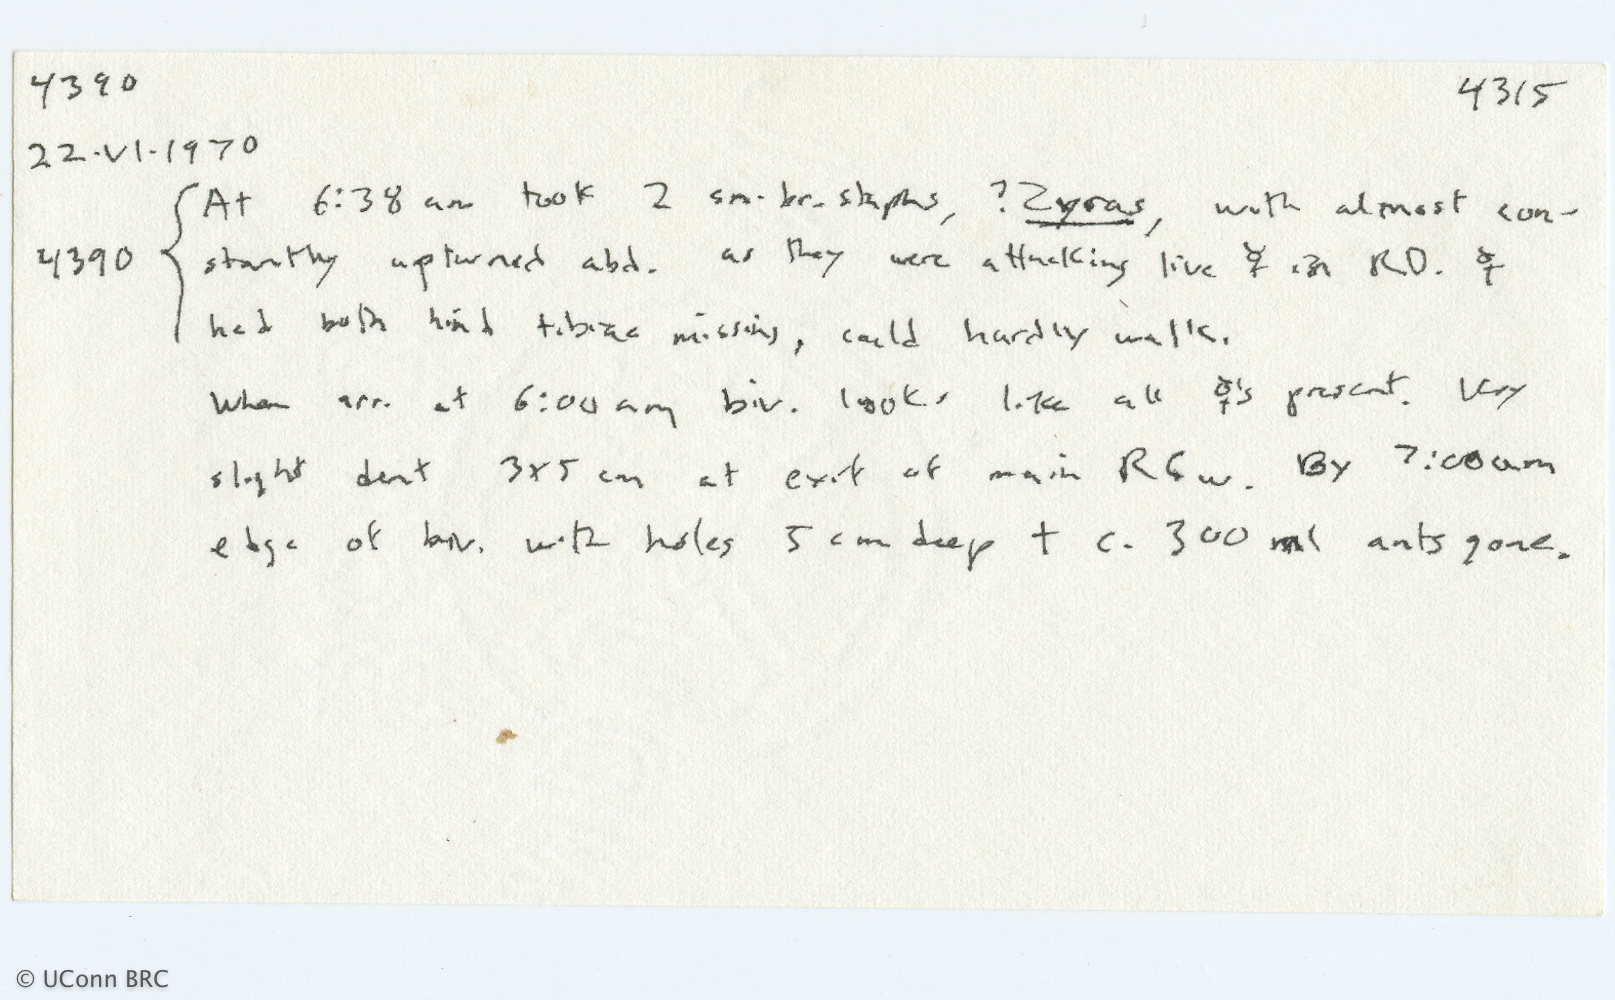 4390 4315
22·VI·1970
At 6:38 am took 2 sm. br. staphs, ?Zyras, with almost con-
4390 stantly upturned abd. as they were attacking live ☿ in RD. ☿
had both hind tibiae missing, could hardly walk.
When arr. at 6:00 am biv. looks like all ☿'s present. Very
slight dent 3x5 cm at exit of main R&w. By 7:00am
edge of biv. with holes 5 cm deep + c. 300 ml ants gone.
© UConn BRC